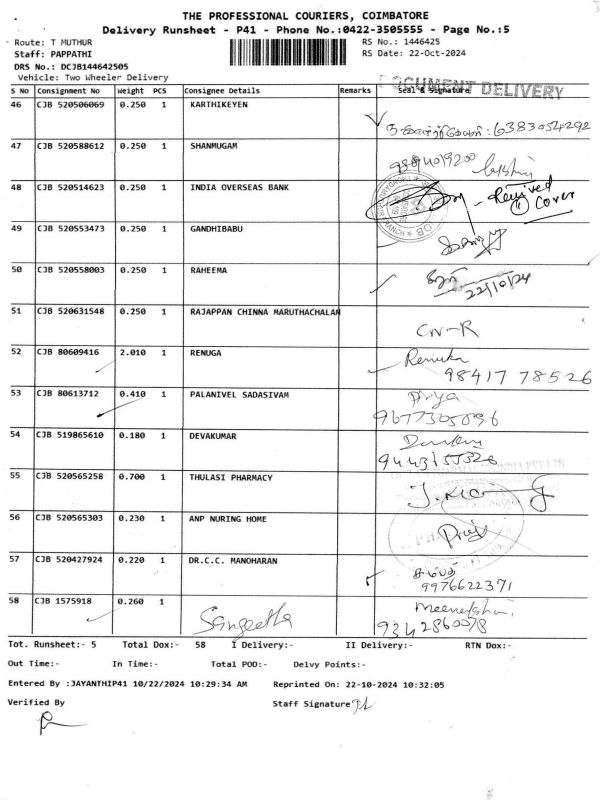 THE PROFESSIONAL COURIERS, COIMBATORE
Delivery Runsheet - P41 - Phone No.:0422-3505555 - Page No.:5
Route: T MUTHUR RS No.: 1446425
Staff: PAPPATHI RS Date: 22-Oct-2024
DRS No.: DCJB144642505
Vehicle: Two Wheeler Delivery
DOCUMENT DELIVERY
S No Consignment No Weight PCS Consignee Details Remarks Seal & Signature
46 CJB 520506069 0.250 1 KARTHIKEYEN
6383054292
47 CJB 520588612 0.250 1 SHANMUGAM
48 CJB 520514623 0.250 1 INDIA OVERSEAS BANK
Received
11 Cover
49 CJB 520553473 0.250 1 GANDHIBABU
50 CJB 520558003 0.250 1 RAHEEMA
22/10/24
51 CJB 520631548 0.250 1 RAJAPPAN CHINNA MARUTHACHALAM
CN-R
52 CJB 80609416 2.010 1 RENUGA
Renuka
98417 78526
53 CJB 80613712 0.410 1 PALANIVEL SADASIVAM
Priya
9677305096
54 CJB 519865610 0.180 1 DEVAKUMAR
55 CJB 520565258 0.700 1 THULASI PHARMACY
56 CJB 520565303 0.230 1 ANP NURING HOME
57 CJB 520427924 0.220 1 DR.C.C. MANOHARAN
சம்பத்
9976622371
58 CJB 1575918 0.260 1
Sangeetha
Meenakshi.
9342860078
Tot. Runsheet:- 5 Total Dox:- 58 I Delivery:- II Delivery:- RTN Dox:-
Out Time:- In Time:- Total POD:- Delvy Points:-
Entered By :JAYANTHIP41 10/22/2024 10:29:34 AM Reprinted On: 22-10-2024 10:32:05
Verified By Staff Signature